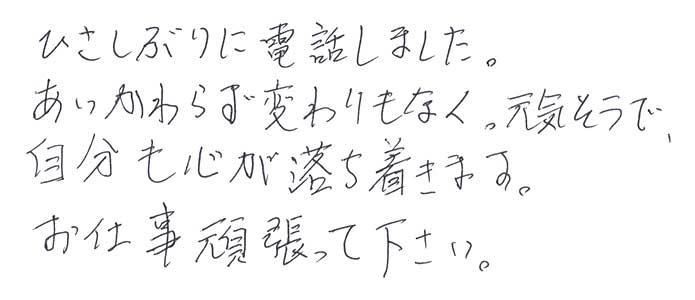 ひさしぶりに電話しました。
あいかわらず変わりもなく。元気そうで、
自分も心が落ち着きます。
お仕事頑張って下さい。